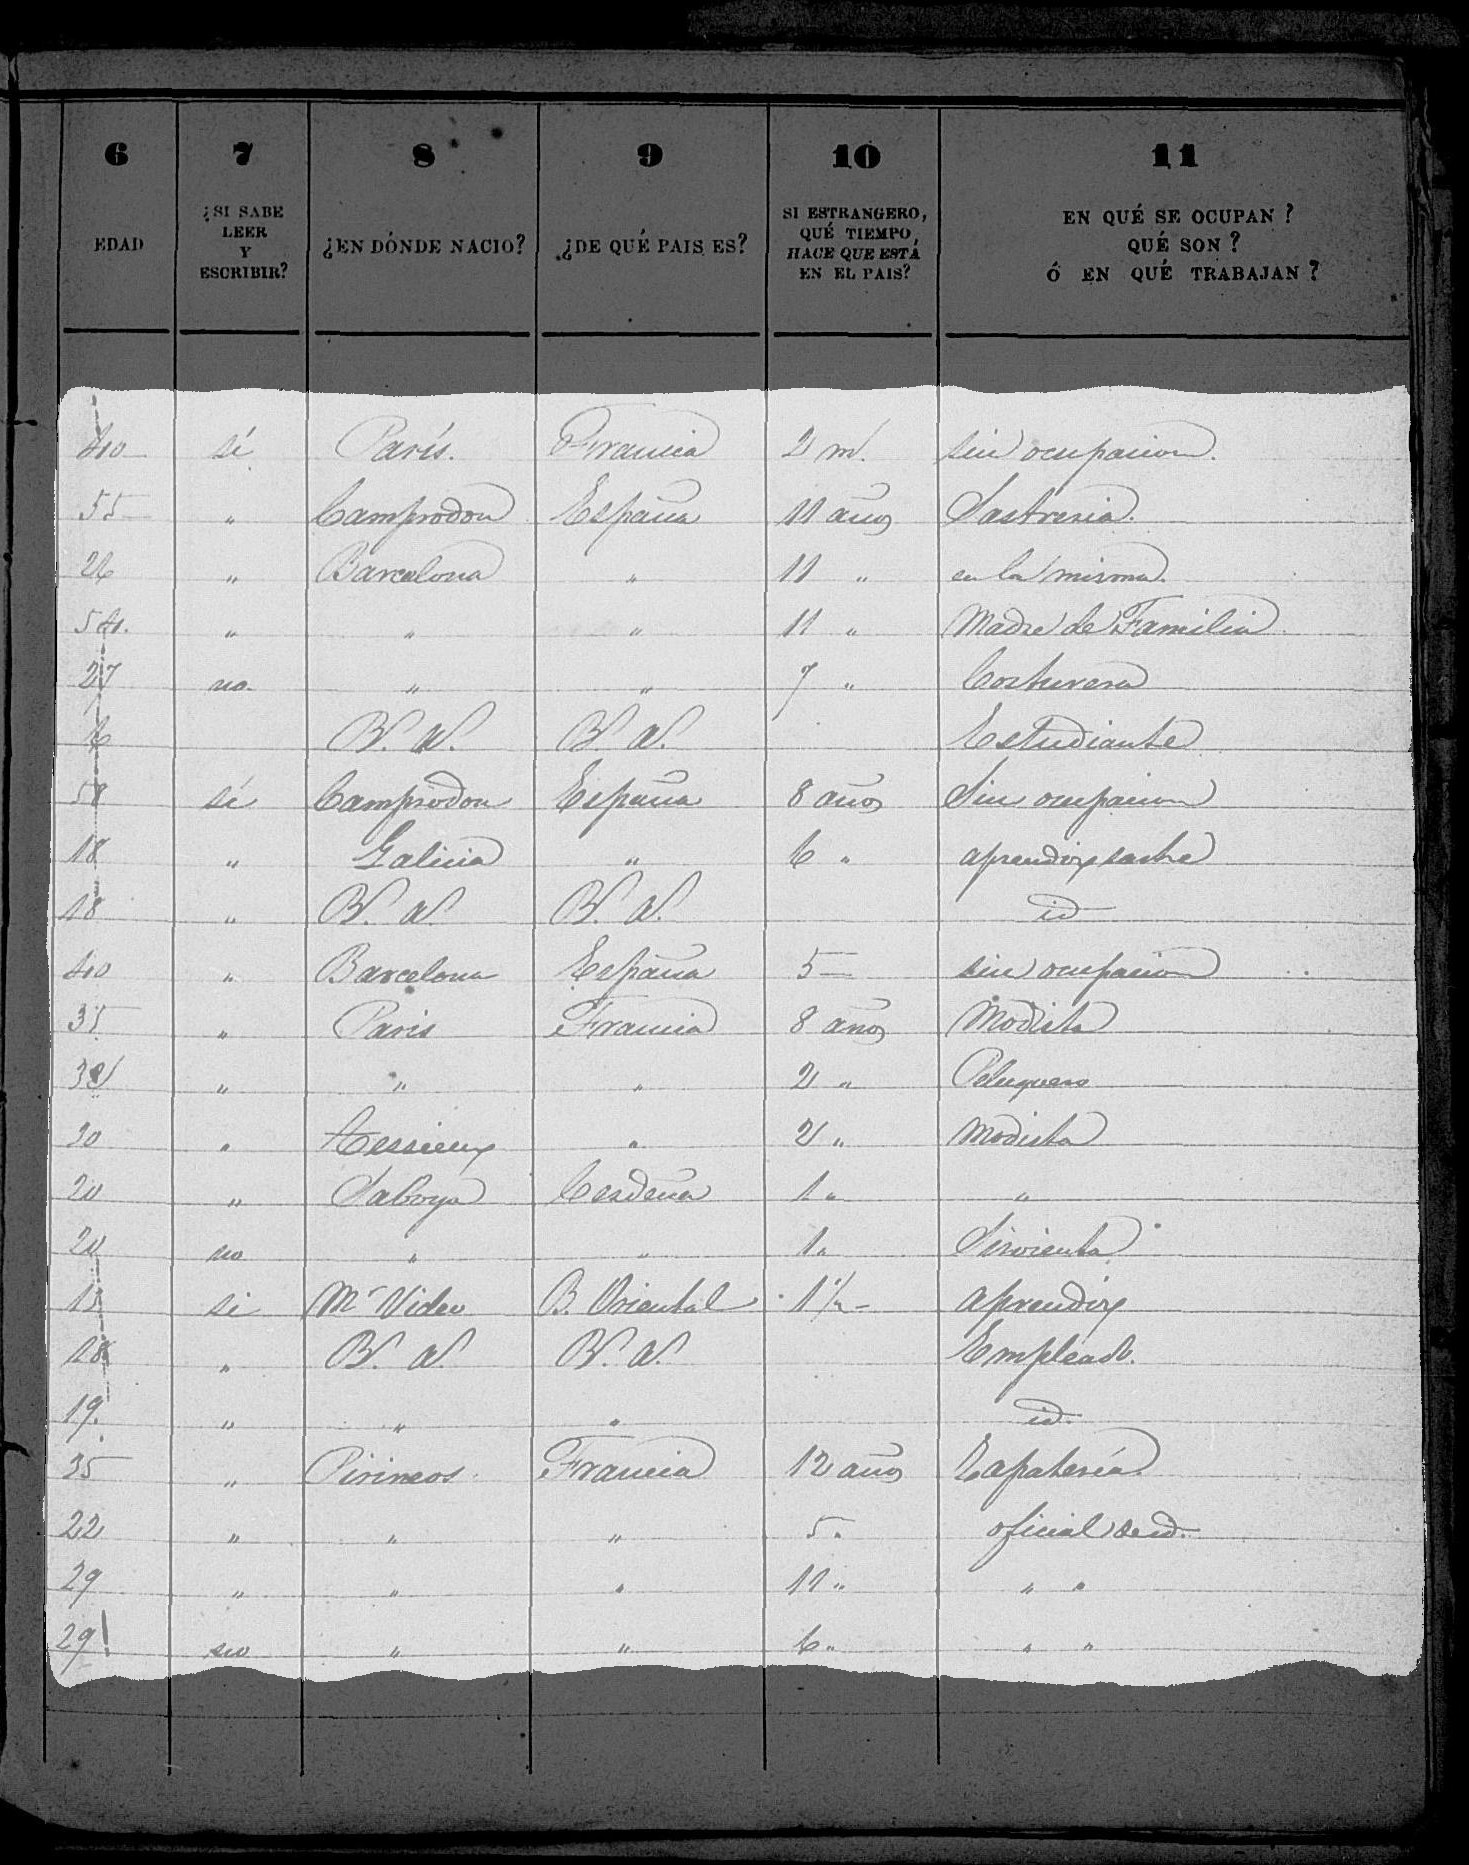 6 7 8 9 10 11
EDAD ¿SI SABE LEER Y ESCRIBIR? ¿EN DÓNDE NACIO? ¿DE QUÉ PAIS ES? SI ESTRANGERO, QUÉ TIEMPO HACE QUE ESTÁ EN EL PAIS? EN QUÉ SE OCUPAN? QUÉ SON? Ó EN QUÉ TRABAJAN?
40 sí París. Francia 2 m. sin ocupacion.
55 " Camprodon España 11 años Sastreria.
26 " Barcelona " 11 " en la misma.
54. " " " 11 " Madre de Familia
27 no. " " 7 " Costurera
6 B. A. B. A. Estudiante
58 sí Camprodon España 8 años Sin ocupacion
18 " Galicia " 6 " aprendiz sastre
18 " B. A. B. A. id
40 " Barcelona España 5 — sin ocupacion
35 " Paris Francia 8 años Modista
" " " 2 " Peluquero
30 " " 2 " Modista
20 " Saboya Cerdeña 1 " "
20 no " " 1 " Sirvienta
15 si Mr Video B. Oriental 1 1/2 - aprendiz
18 " B. A. B. A. Empleado.
19. " " " id.
35 " Pirineos. Francia 12 años Zapatería
22 " " " 5 " oficial de id.
29 " " " 11 " " "
29 no " " 6 " " "